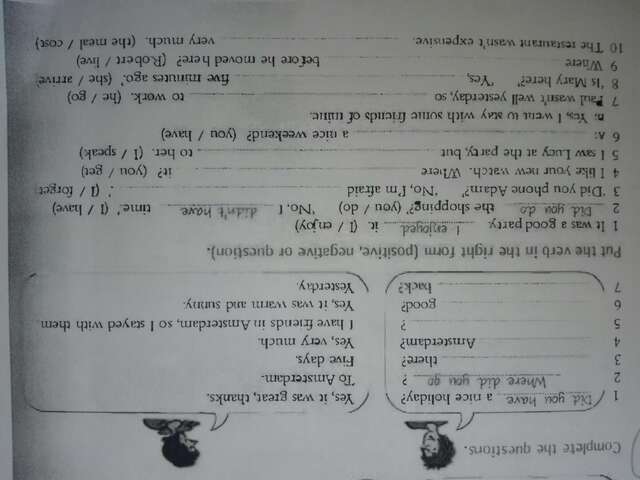 Complete the questions.
1 Did you have a nice holiday? Yes, it was great, thanks.
2 Where did you go ? To Amsterdam.
3 there? Five days.
4 Amsterdam? Yes, very much.
5 ? I have friends in Amsterdam, so I stayed with them.
6 good? Yes, it was warm and sunny.
7 back? Yesterday.
Put the verb in the right form (positive, negative or question).
1 It was a good party. I enjoyed it. (I / enjoy)
2 Did you do the shopping? (you / do) 'No, I didn't have time.' (I / have)
3 'Did you phone Adam?' 'No, I'm afraid .' (I / forget
4 I like your new watch. Where it? (you / get)
5 I saw Lucy at the party, but to her. (I / speak)
6 A: a nice weekend? (you / have)
B: Yes, I went to stay with some friends of mine.
7 Paul wasn't well yesterday, so to work. (he / go)
8 'Is Mary here?' 'Yes, five minutes ago.' (she / arrive)
9 Where before he moved here? (Robert / live)
10 The restaurant wasn't expensive. very much. (the meal / cost)